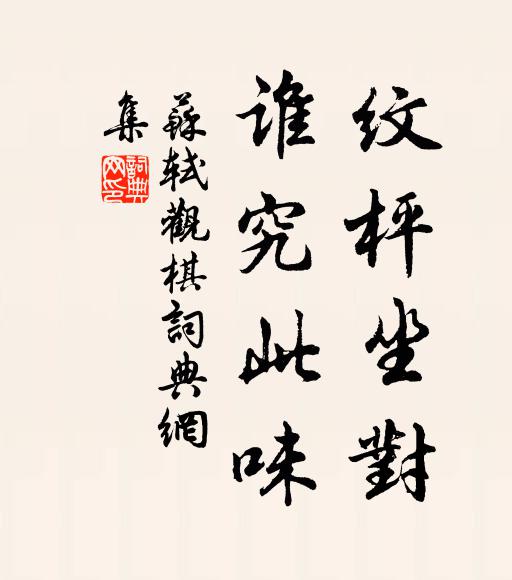 纹枰坐對
谁究此味
蘇轼觀棋詞典網
集
詞典
网印